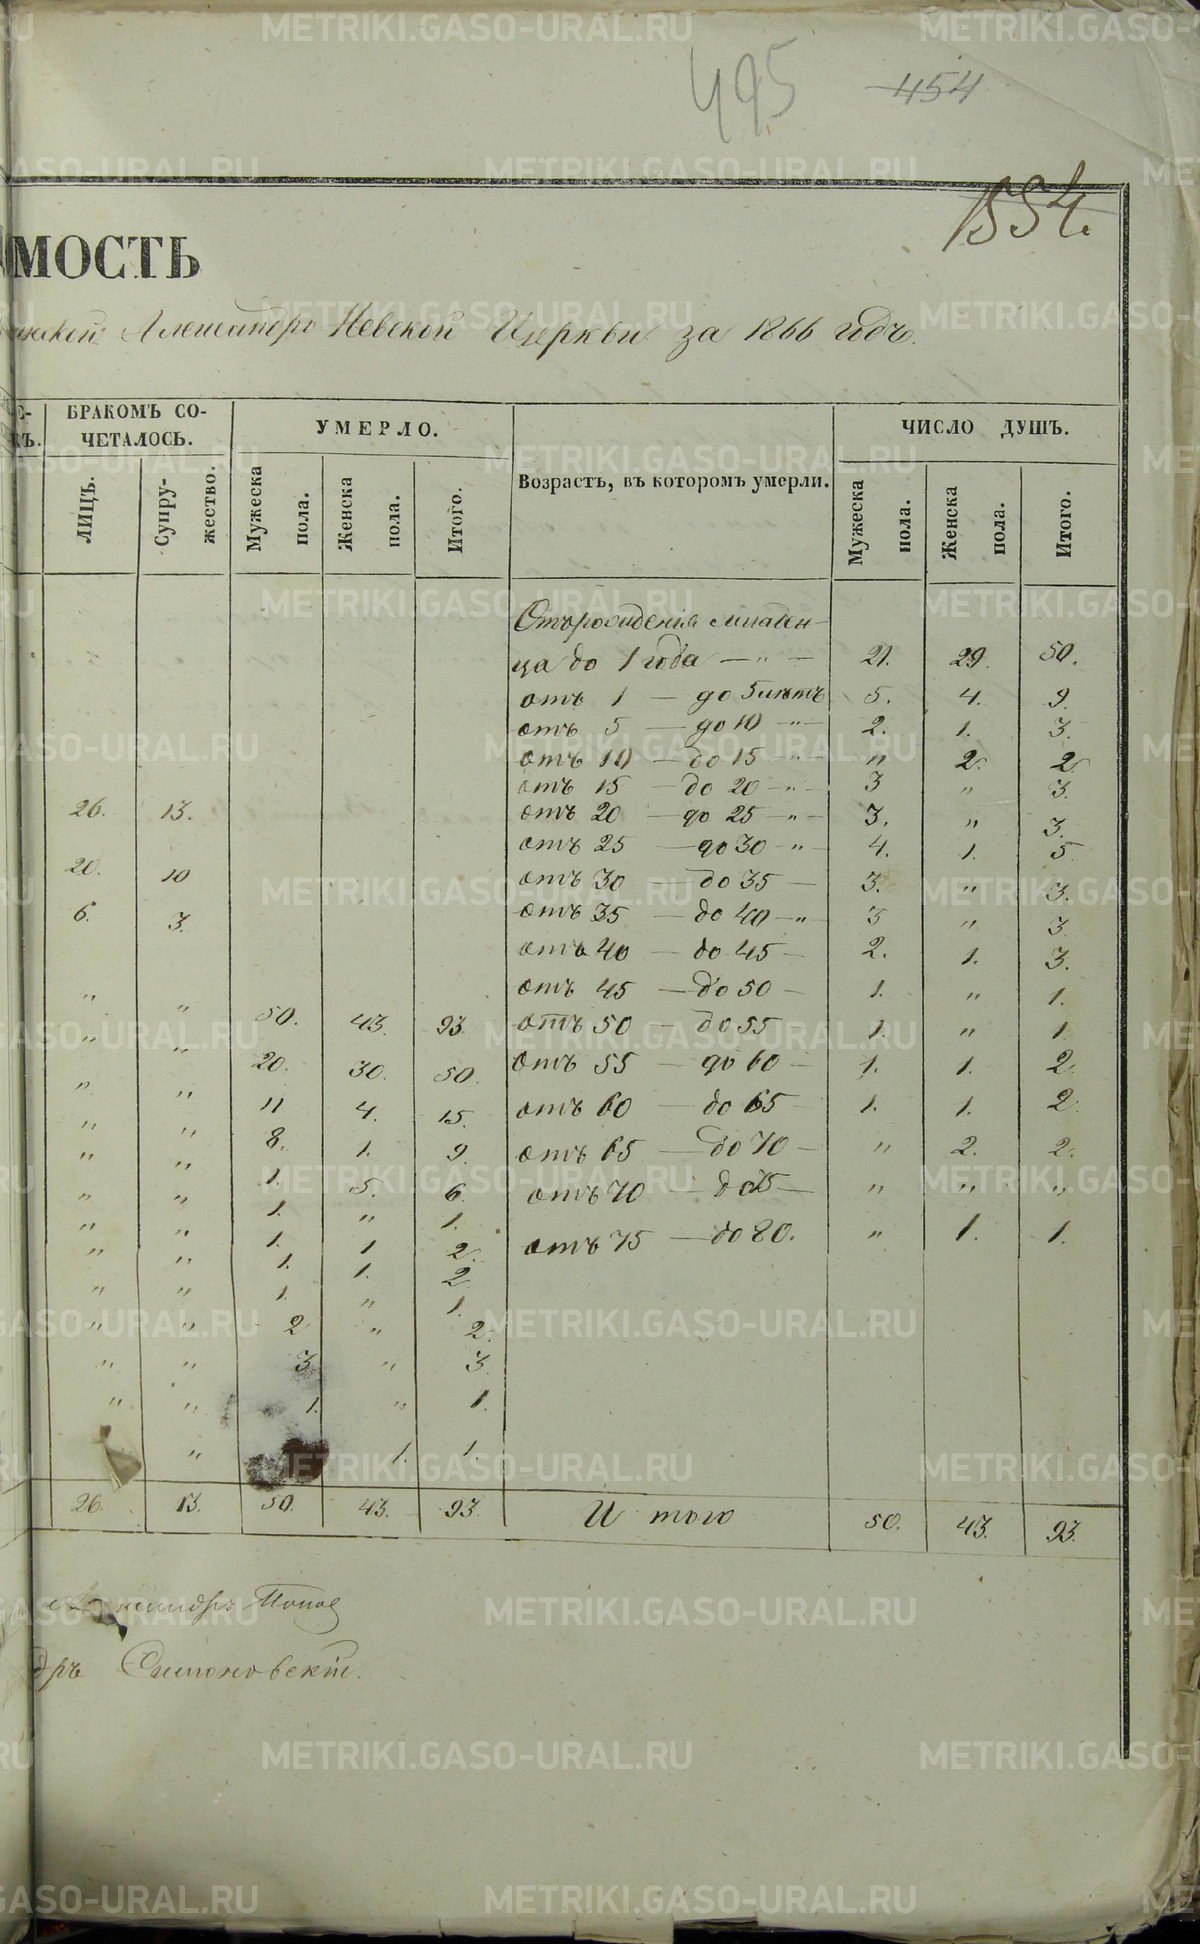 495 454
1554.
МОСТЬ
Александро Невской Церкви за 1866 годъ.
БРАКОМЪ СО-
ЧЕТАЛОСЬ.
УМЕРЛО.
Возрастъ, въ которомъ умерли.
ЧИСЛО ДУШЪ.
ЛИЦЪ.
Супру-
жество.
Мужеска
пола.
Женска
пола.
Итого.
Мужеска
пола.
Женска
пола.
Итого.
Отъ рожденія младен-
ца до 1 года — „ — 21. 29. 50.
отъ 1 — до 5 лѣтъ 5. 4. 9.
отъ 5 — до 10 — „ — 2. 1. 3.
отъ 10 — до 15 — „ — „ 2. 2.
отъ 15 — до 20 — „ — 3 „ 3.
26. 13. отъ 20 — до 25 — „ — 3. „ 3.
отъ 25 — до 30 — „ — 4. 1. 5.
20. 10 отъ 30 — до 35 — 3. „ 3.
6. 3. отъ 35 — до 40 — „ 3 „ 3
отъ 40 — до 45 — 2. 1. 3.
отъ 45 — до 50 — 1. „ 1.
„ „ 50. 43. 93. отъ 50 — до 55 1. „ 1.
„ „ 20. 30. 50. отъ 55 — до 60 — 1. 1. 2.
„ „ 11 4. 15. отъ 60 — до 65 1. 1. 2.
„ „ 8. 1. 9. отъ 65 — до 70 — „ 2. 2.
„ „ 1. 5. 6. отъ 70 — до 75 — „ „ „
„ „ 1. „ 1. отъ 75 — до 80. „ 1. 1.
„ „ 1. 1 2.
„ „ 1. 1. 2
„ „ 1. „ 1.
„ „ 2 „ 2.
„ „ 3 „ 3.
„ „ 1. „ 1.
„ 1. 1.
26. 13. 50. 43. 93. Итого 50. 43. 93.
Попов
дръ Симоновскій.
METRIKI.GASO-URAL.RU